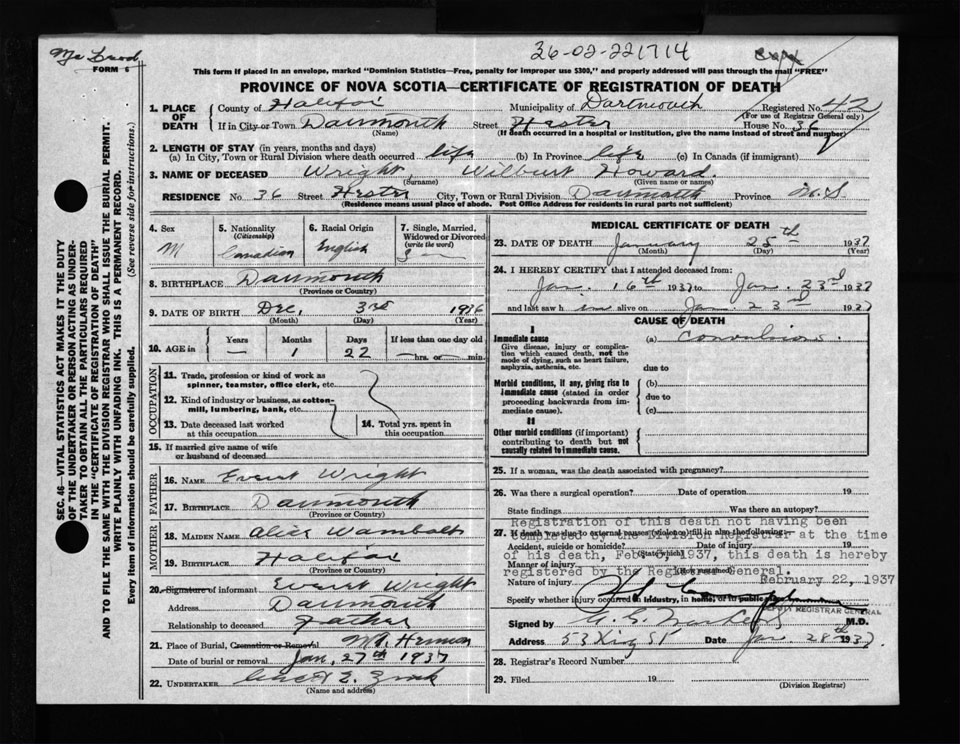 36-02-221714
FORM 6
This form if placed in an envelope, marked "Dominion Statistics—Free, penalty for improper use $300," and properly addressed will pass through the mail "FREE"
PROVINCE OF NOVA SCOTIA—CERTIFICATE OF REGISTRATION OF DEATH
1. PLACE OF DEATH County of Halifax Municipality of Dartmouth Registered No. 42
(For use of Registrar General only)
If in City or Town Dartmouth Street Hester House No. 36
(Name) (If death occurred in a hospital or institution, give the name instead of street and number)
2. LENGTH OF STAY (in years, months and days)
(a) In City, Town or Rural Division where death occurred life (b) In Province life (c) In Canada (if immigrant)
3. NAME OF DECEASED Wright, Wilbert Howard.
(Surname) (Given name or names)
RESIDENCE No. 36 Street Hester City, Town or Rural Division Dartmouth Province N.S.
(Residence means usual place of abode. Post Office Address for residents in rural parts not sufficient)
SEC. 46—VITAL STATISTICS ACT MAKES IT THE DUTY
OF THE UNDERTAKER OR PERSON ACTING AS UNDER-
TAKER TO OBTAIN ALL THE PARTICULARS REQUIRED
IN THE "CERTIFICATE OF REGISTRATION OF DEATH"
AND TO FILE THE SAME WITH THE DIVISION REGISTRAR WHO SHALL ISSUE THE BURIAL PERMIT.
WRITE PLAINLY WITH UNFADING INK. THIS IS A PERMANENT RECORD.
Every item of information should be carefully supplied. (See reverse side for instructions.)
4. Sex M
5. Nationality (Citizenship) Canadian
6. Racial Origin English
7. Single, Married, Widowed or Divorced (write the word)
8. BIRTHPLACE Dartmouth
(Province or Country)
9. DATE OF BIRTH Dec, 3rd 1936
(Month) (Day) (Year)
10. AGE in Years — Months 1 Days 22 If less than one day old —hrs. or —min.
OCCUPATION
11. Trade, profession or kind of work as spinner, teamster, office clerk, etc.
12. Kind of industry or business, as cotton-mill, lumbering, bank, etc.
13. Date deceased last worked at this occupation
14. Total yrs. spent in this occupation
15. If married give name of wife or husband of deceased
FATHER
16. NAME Evert Wright
17. BIRTHPLACE Dartmouth
(Province or Country)
MOTHER
18. MAIDEN NAME Alice Wambolt
19. BIRTHPLACE Halifax
(Province or Country)
20. Signature of informant Evert Wright
Address Dartmouth
Relationship to deceased Father
21. Place of Burial, Cremation or Removal Mt. Hermon
Date of burial or removal Jan, 27th 1937
22. UNDERTAKER
(Name and address)
MEDICAL CERTIFICATE OF DEATH
23. DATE OF DEATH January 25th 1937
(Month) (Day) (Year)
24. I HEREBY CERTIFY that I attended deceased from:
Jan. 16th 1937 to Jan. 23rd 1937
and last saw h im alive on Jan 23rd 1937
CAUSE OF DEATH
I
Immediate cause
Give disease, injury or complication which caused death, not the mode of dying, such as heart failure, asphyxia, asthenia, etc.
(a) Convulsions.
due to
Morbid conditions, if any, giving rise to immediate cause (stated in order proceeding backwards from immediate cause).
(b)
due to
(c)
II
Other morbid conditions (if important) contributing to death but not causally related to immediate cause.
25. If a woman, was the death associated with pregnancy?
26. Was there a surgical operation? Date of operation 19
State findings Was there an autopsy?
27. If death was due to external causes (violence) fill in also the following:
Accident, suicide or homicide? Date of injury 19
Manner of injury
Nature of injury
Specify whether injury occurred in industry, in home, or in public place
Registration of this death not having been
completed by the Division Registrar at the time
of his death, Feb. 6, 1937, this death is hereby
registered by the Registrar General.
February 22, 1937
DEPUTY REGISTRAR GENERAL
Signed by M.D.
Address 53 King St Date Jan. 28th 1937
28. Registrar's Record Number
29. Filed 19
(Division Registrar)